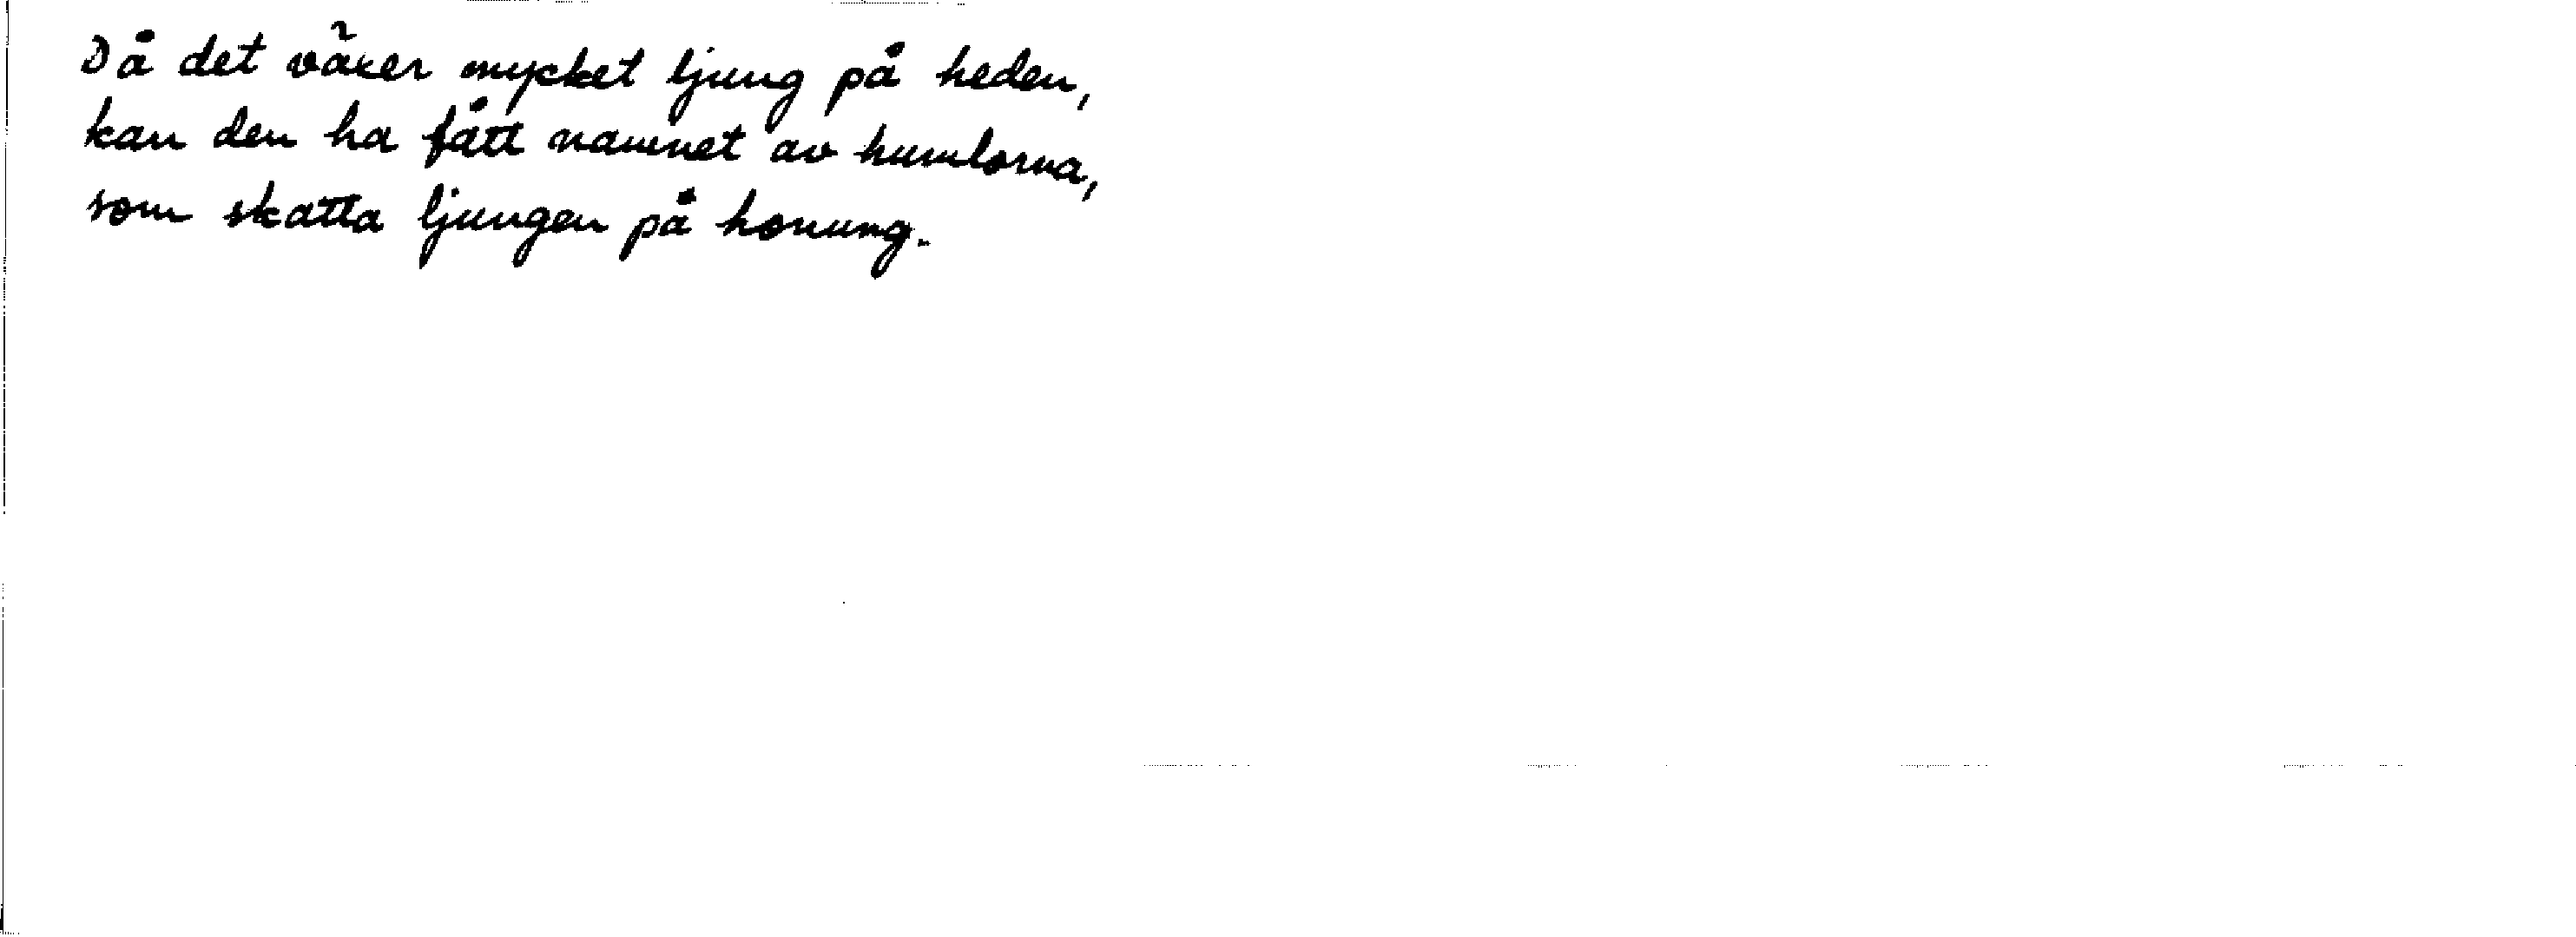 Då det växer mycket ljung på heden,
kan den ha fått namnet av humlorna,
som skatta ljungen på honung.